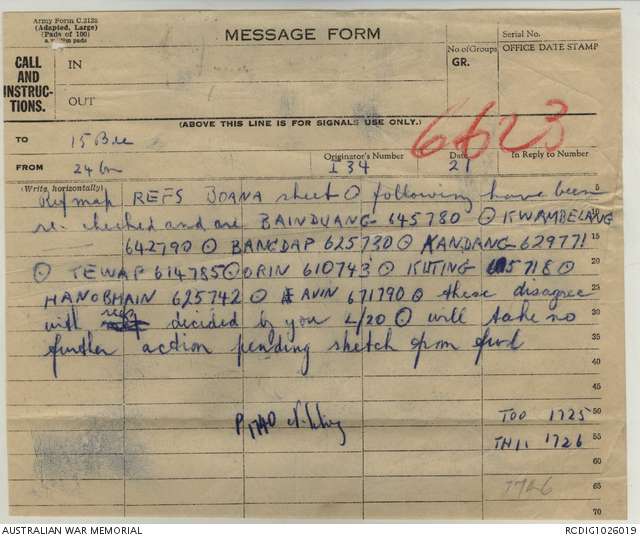 Army Form C.2128
(Adapted, Large)
(Pads of 100)
MESSAGE FORM
Serial No.
CALL
AND
INSTRUC-
TIONS.
IN
OUT
No. of Groups
GR.
OFFICE DATE STAMP
(ABOVE THIS LINE IS FOR SIGNALS USE ONLY.)
6623
TO 15 Bde
Originator's Number
Date
In Reply to Number
FROM 24 Bn
I 34
21
(Write, horizontally)
Ref map REFS JOANA sheet ⊙ following have been 5
re. checked and are BAINDUANG 645780 ⊙ KWAMBELANG 10
642790 ⊙ BANGDAP 625730 ⊙ KANDANG 629771 15
⊙ TEWAP 614785 ⊙ ORIN 610743 ⊙ KUTING 5718 ⊙ 20
HANOBMAIN 625742 ⊙ AVIN 671790 ⊙ these disagree 25
with decided by you L/20 ⊙ will take no 30
further action pending sketch from fwd 35
40
45
P 1740
TOO 1725 50
THI 1726 55
60
1726 65
70
AUSTRALIAN WAR MEMORIAL
RCDIG1026019